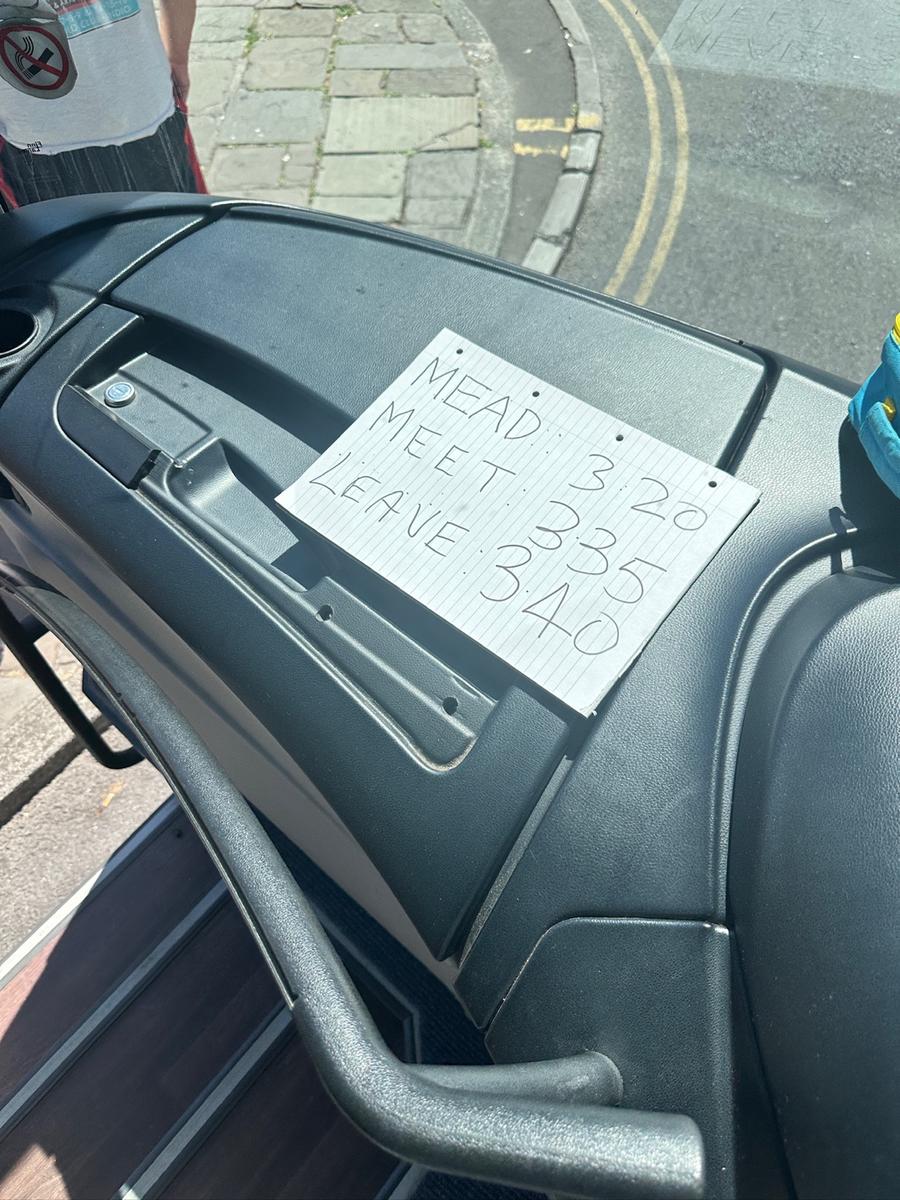 MEAD : 3 20
MEET : 335
LEAVE : 340